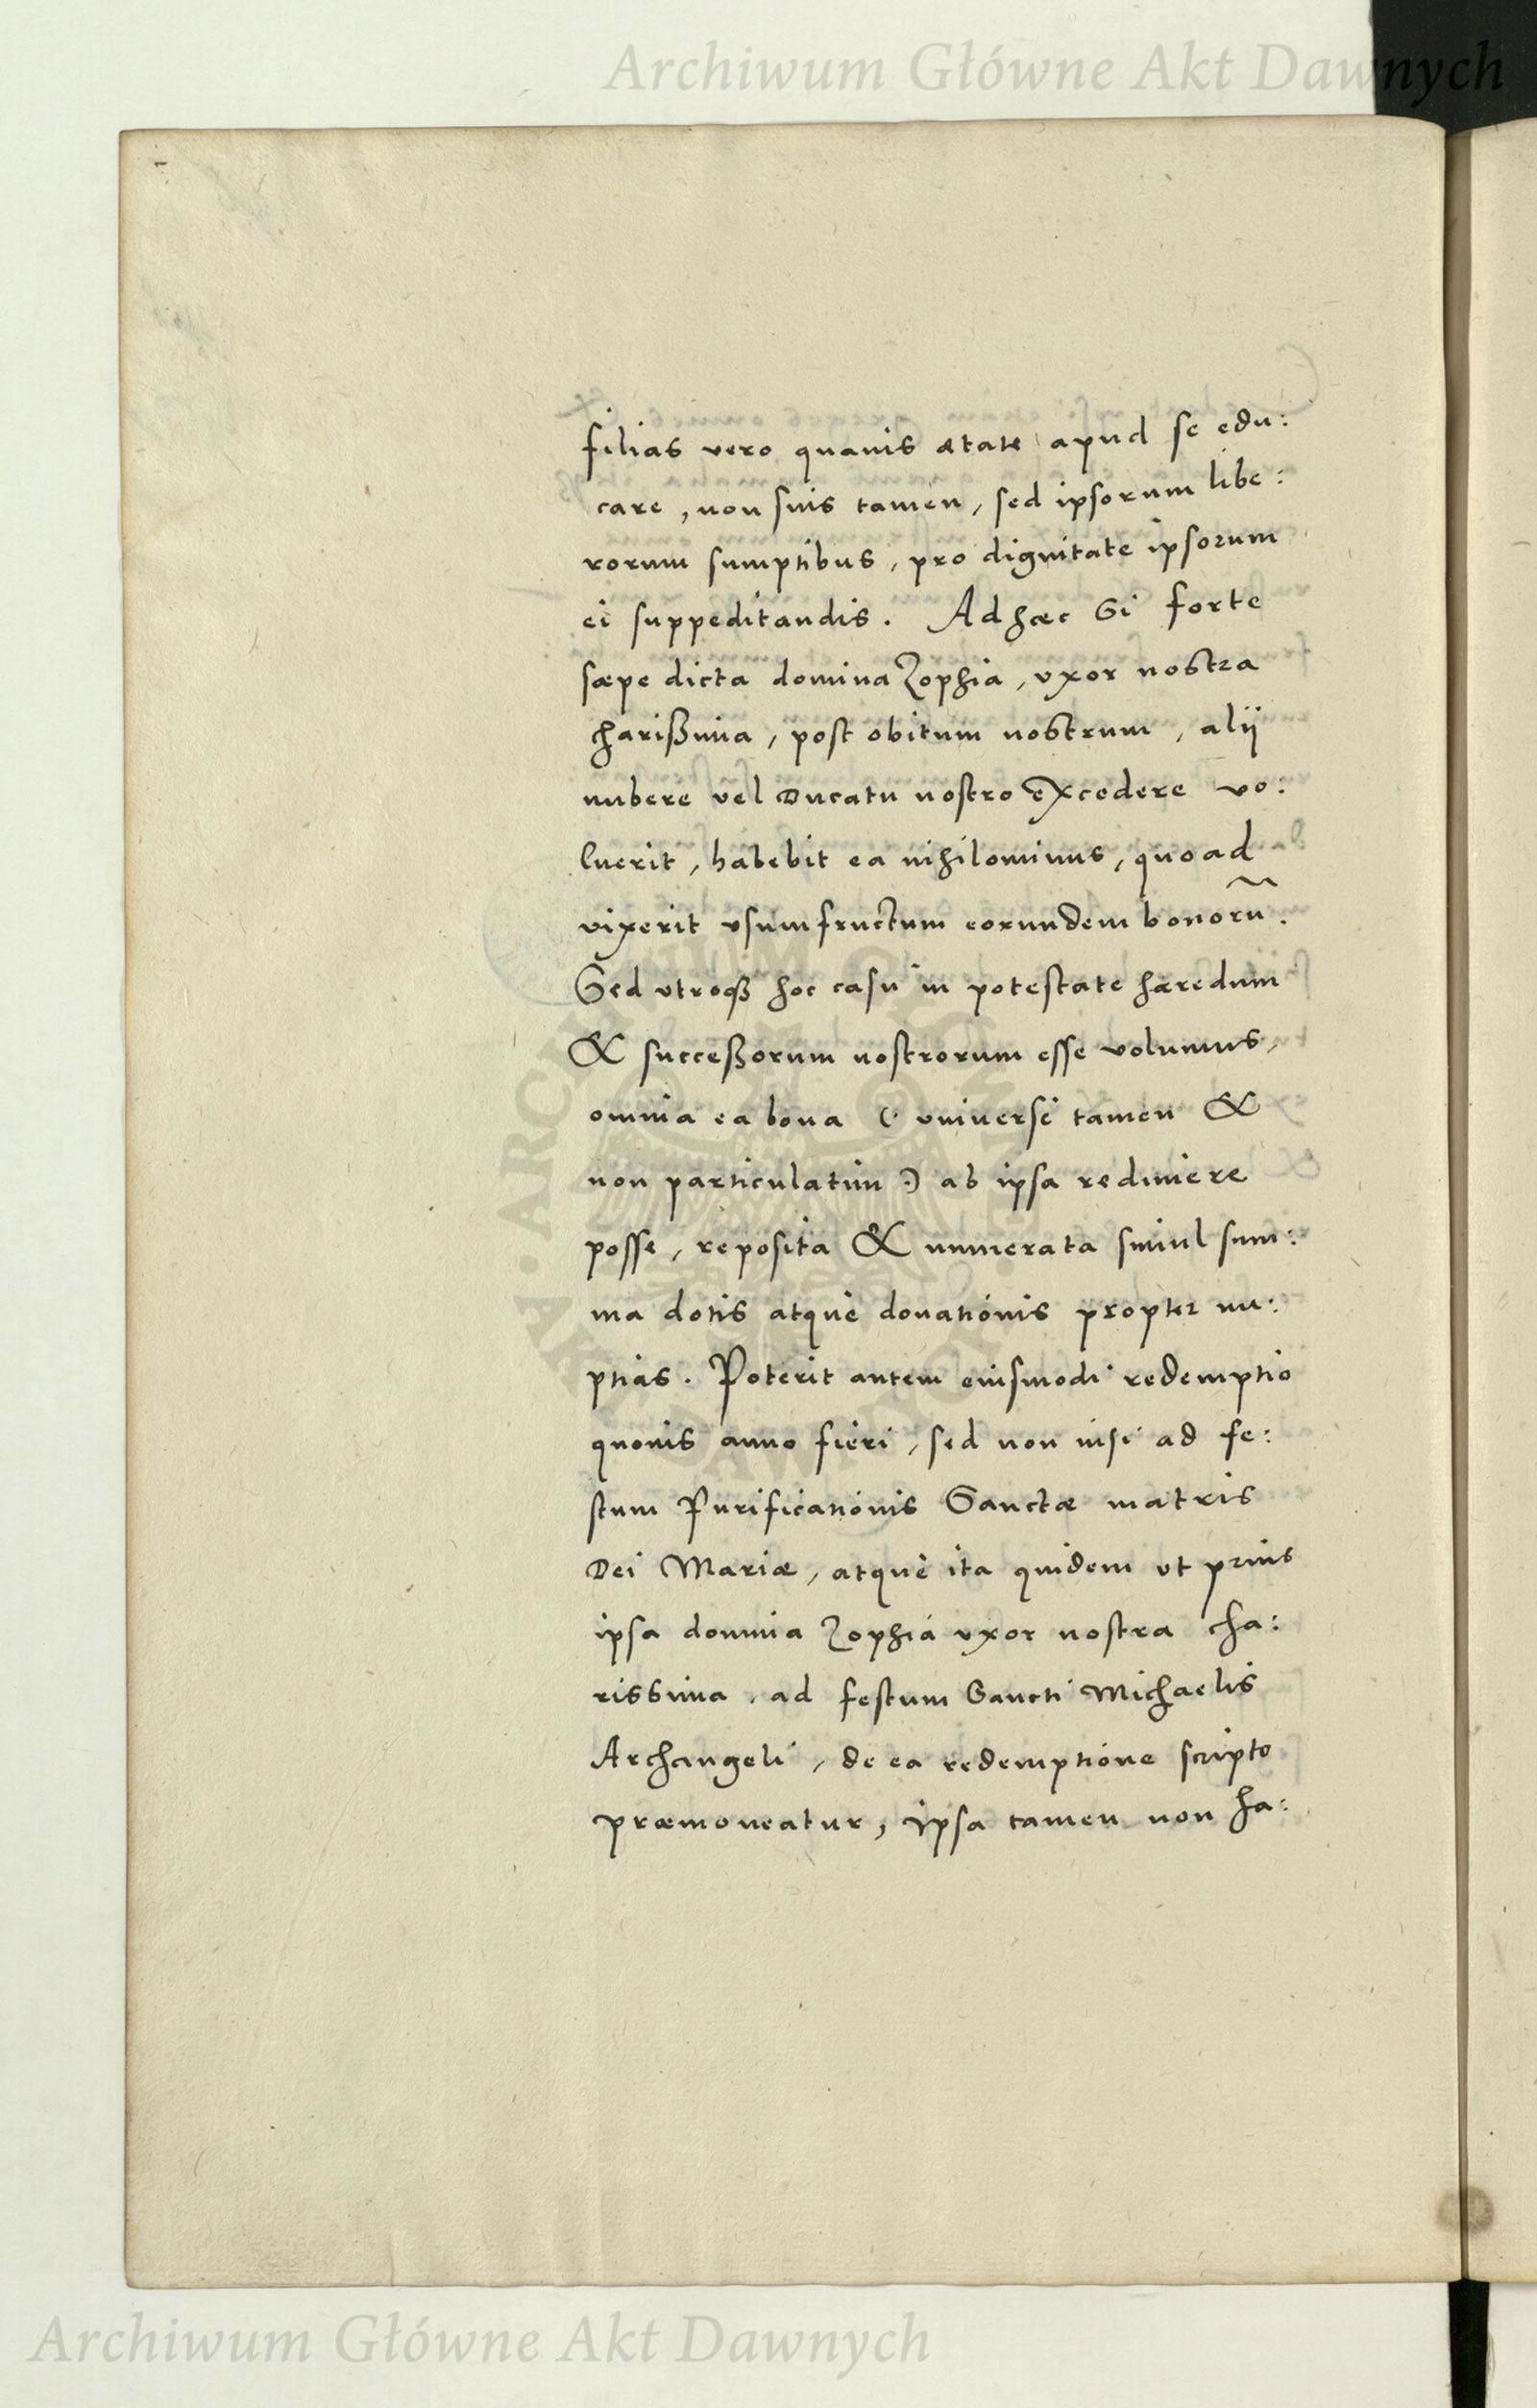 Archiwum Główne Akt Dawnych
filias vero quavis ætate apud se edu:
care, non suis tamen, sed ipsorum libe:
rorum sumptibus, pro dignitate ipsorum
ei suppeditandis. Ad hæc Si forte
sæpe dicta domina Zophia, vxor nostra
charißima, post obitum nostrum, alij
nubere vel Ducatu nostro excedere vo:
luerit, habebit ea nihilominus, quoad
vixerit vsumfructum eorundem bonorū.
Sed vtroqꝫ hoc casu in potestate hæredum
& succeßorum nostrorum esse volumus,
omnia ea bona (: vniversi tamen &
non particulatim :) ab ipsa redimere
posse, reposita & numerata simul sum:
ma dotis atque donationis propter nu:
ptias. Poterit autem eiusmodi redemptio
quovis anno fieri, sed non nisi ad fe:
stum Purificationis Sanctæ matris
Dei Mariæ, atque ita quidem vt prius
ipsa domina Zophia vxor nostra cha:
rissima, ad festum Sancti Michaelis
Archangeli, de ea redemptione scripto
præmoneatur, ipsa tamen non ha:
Archiwum Główne Akt Dawnych